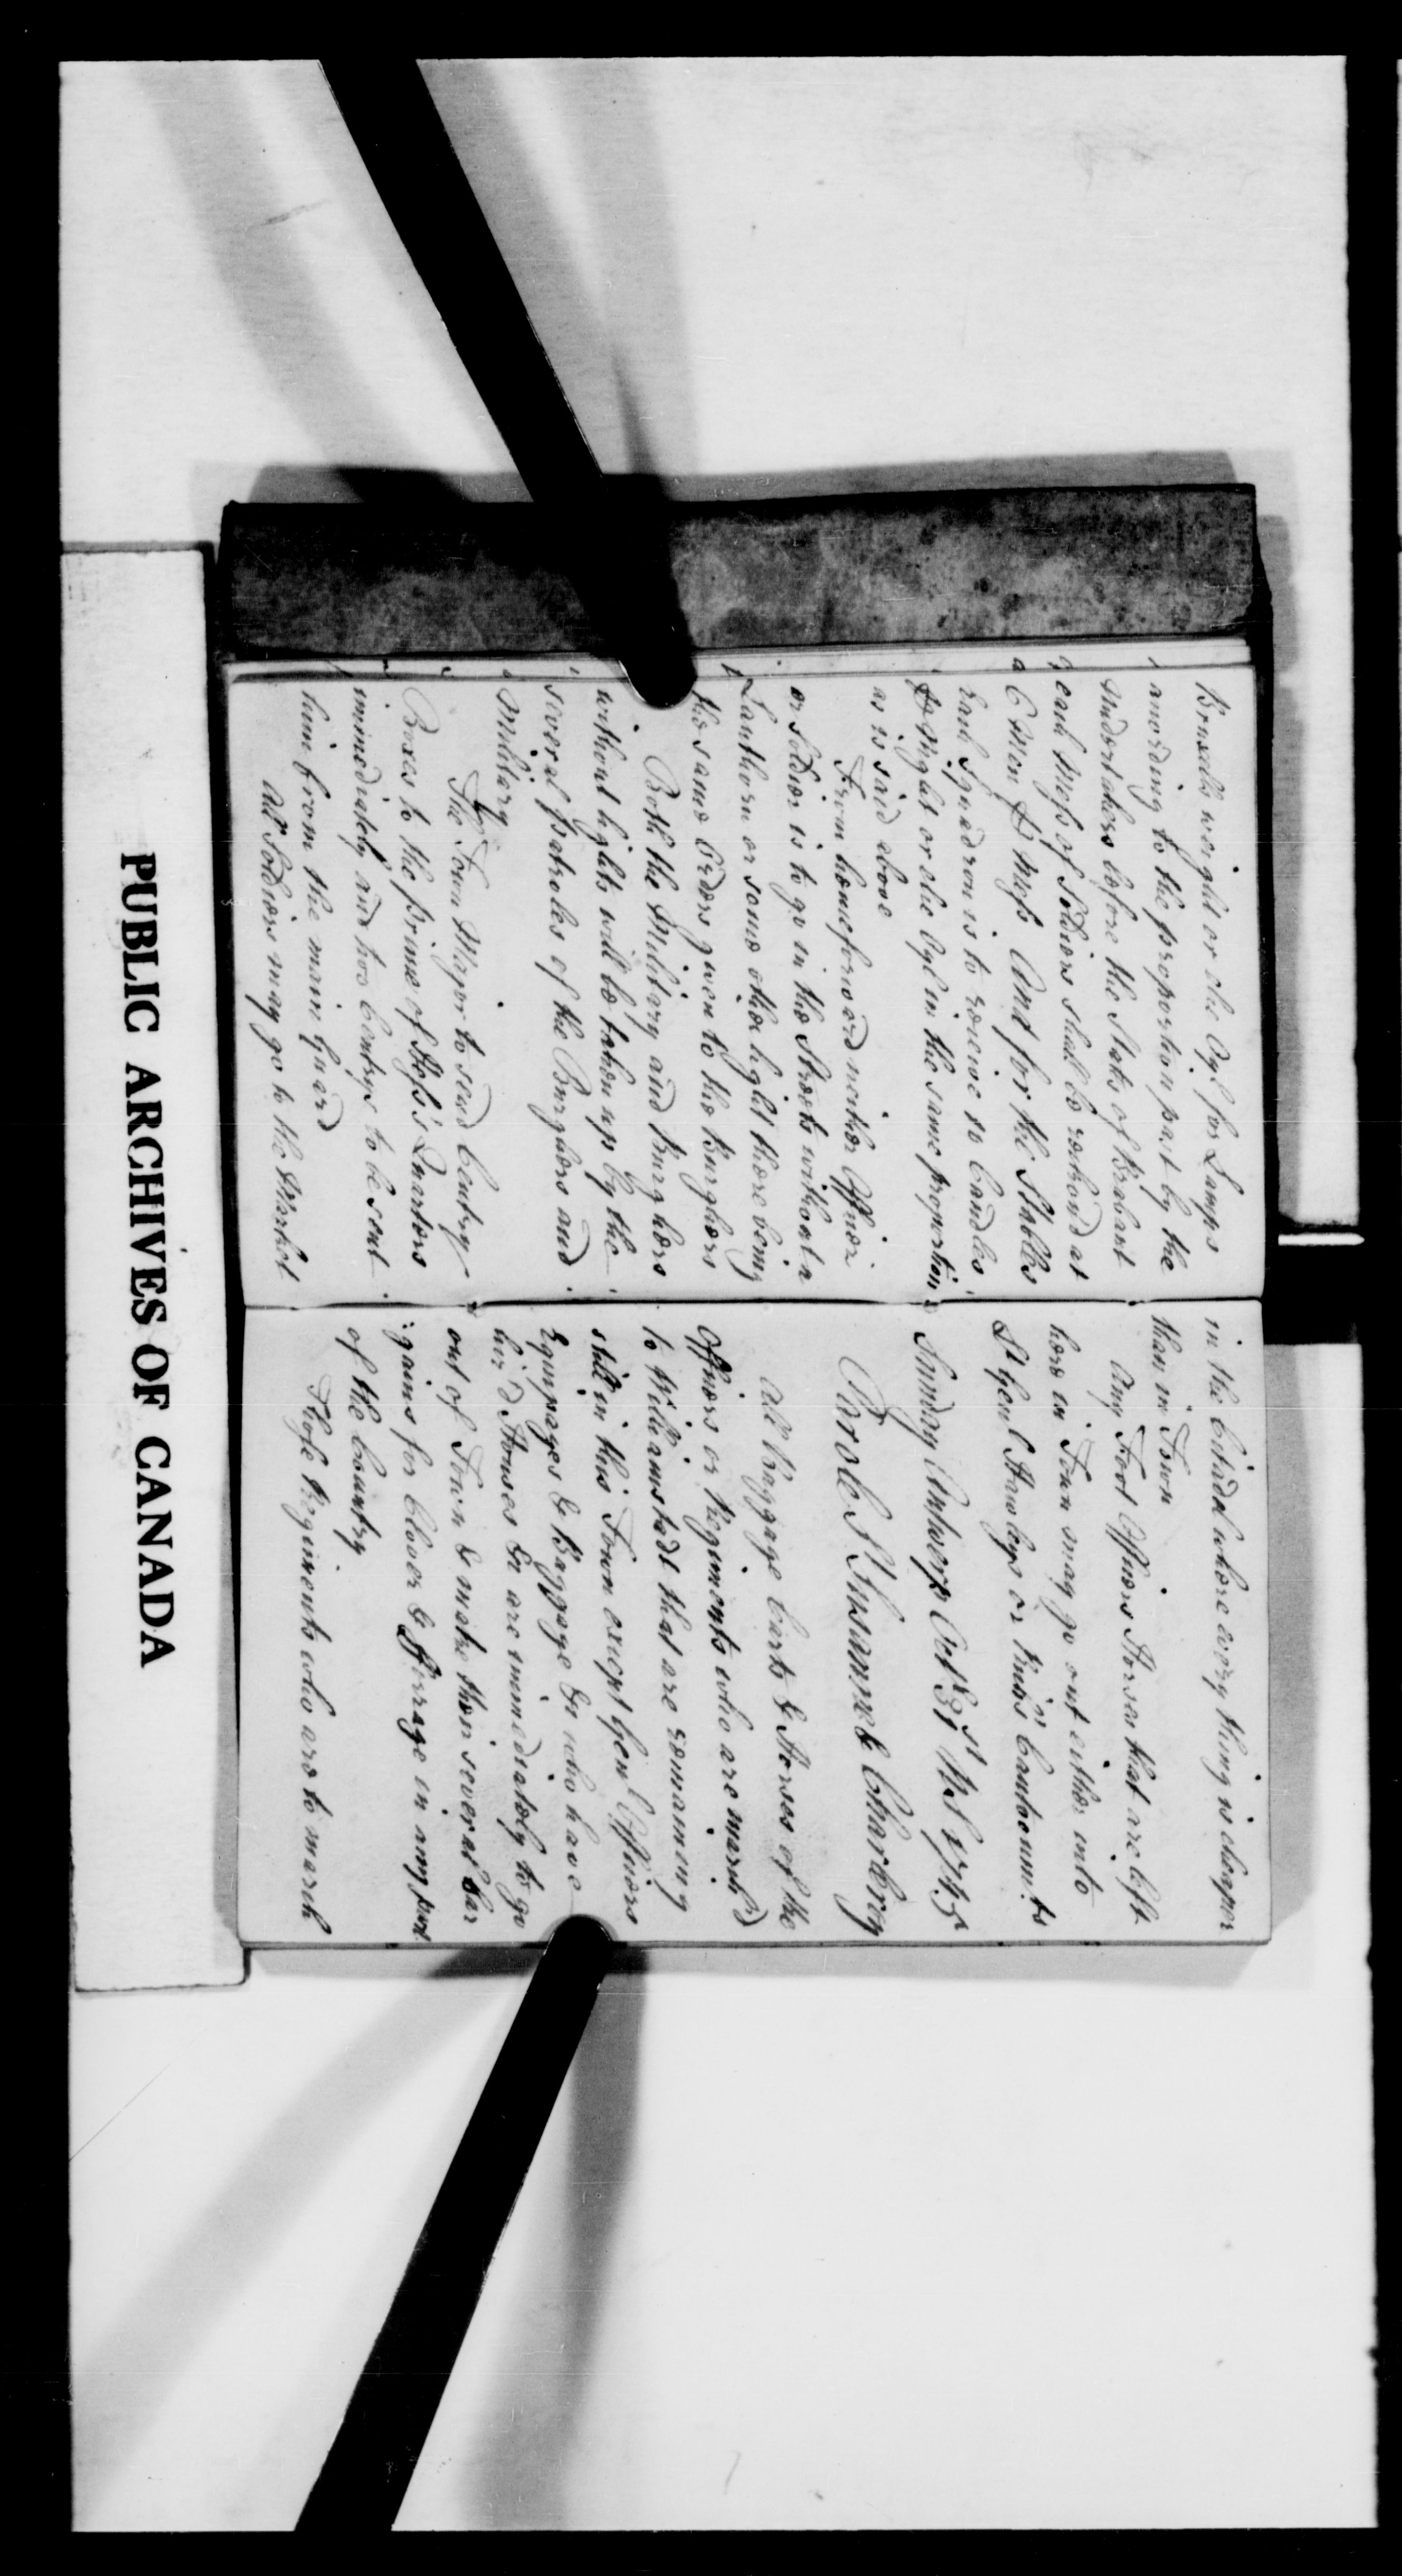 Brussells weight or else Oyl for Lamps
according to the proportion past by the
undertakers before the States of Brabant
each Mess of Soldiers shall be reckond at
6 Men p Mess And for the Stables
Each Squadron is to receive 10 Candles
p Night or else Oyl in the same proportion
as is said above
From henceforward neither Officer
or Soldier is to go in the Streets without a
Lanthorn or some other light there being
the same Orders given to the Burghers
Both the Military and Burghers
without lights will be taken up by the
several patroles of the Burghers and
Military
The Town Major to send Centry
Boxes to the prince of Hess's Quarters
immediately and two Centrys to be sent
him from the main Guard
All Soldiers may go to the Market
in the Citadel where every thing is cheaper
than in Town
Any Foot Officers Horses that are left
here in Town may go out either into
Lt Genl Hawleys or Cantonmts
Sunday Antwerp Oct 31st 1745
Parole St Susanne & Charleroy
All Baggage Carts & Horses of the
Officers or Regiments who are march'd
to Williamstadt that are remaining
still in this Town except Genl Officers
Equipages & Baggage & who have
hir'd Houses are immediately to go
out of Town & make their several bar
:gains for Clover & Forrage in any part
of the Country
Those Regiments who are to march
PUBLIC ARCHIVES OF CANADA